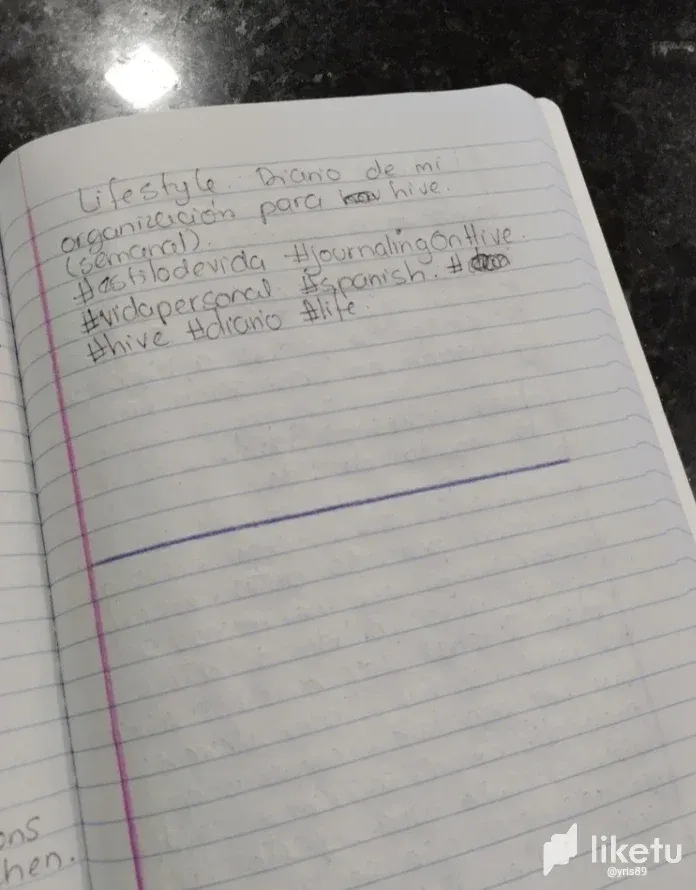 Lifestyle. Diario de mi
organización para hive.
(semanal).
#estilodevida #journalingOnHive.
#vidapersonal #spanish. #
#hive #diario #life.
ons
hen.
liketu
@yris89